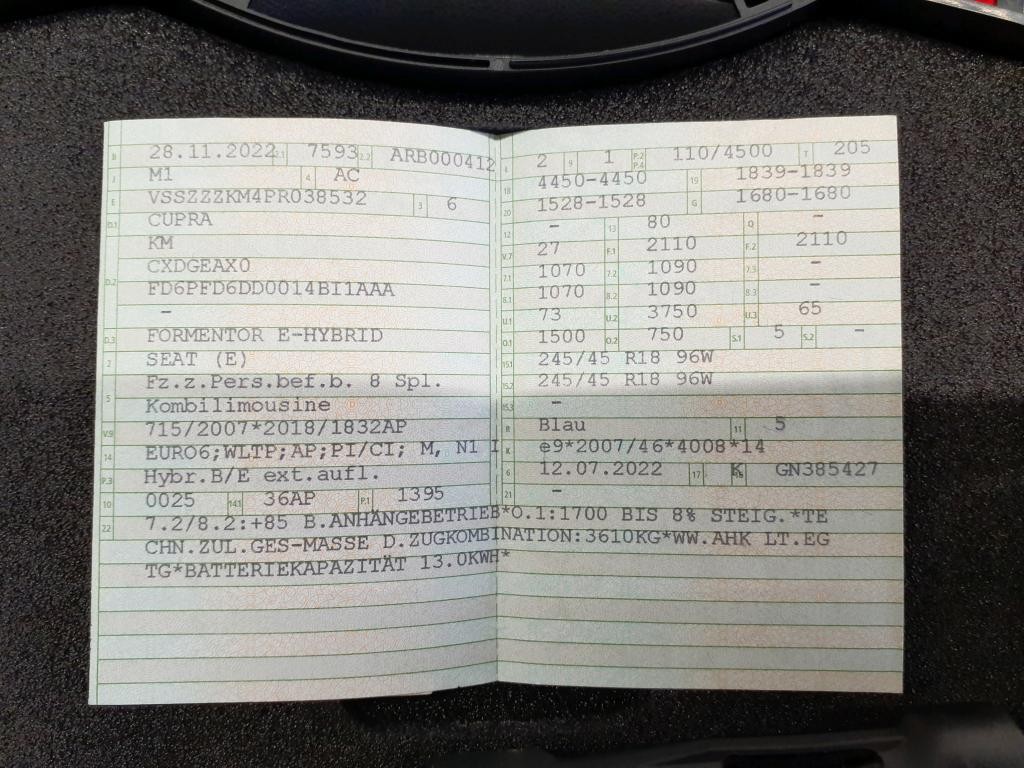 B 28.11.2022 2.1 7593 2.2 ARB000412
J M1 4 AC
E VSSZZZKM4PR038532 3 6
D.1 CUPRA
KM
D.2 CXDGEAX0
FD6PFD6DD0014BI1AAA
-
D.3 FORMENTOR E-HYBRID
2 SEAT (E)
Fz.z.Pers.bef.b. 8 Spl.
5 Kombilimousine
V.9 715/2007*2018/1832AP
14 EURO6;WLTP;AP;PI/CI; M, N1 I
P.3 Hybr.B/E ext.aufl.
10 0025 14.1 36AP P.1 1395
22 7.2/8.2:+85 B.ANHÄNGEBETRIEB*O.1:1700 BIS 8% STEIG.*TE
CHN.ZUL.GES-MASSE D.ZUGKOMBINATION:3610KG*WW.AHK LT.EG
TG*BATTERIEKAPAZITÄT 13.0KWH*
L 2 9 1 P.2 P.4 110/4500 T 205
18 4450-4450 19 1839-1839
20 1528-1528 G 1680-1680
12 - 13 80 Q -
V.7 27 F.1 2110 F.2 2110
7.1 1070 7.2 1090 7.3 -
8.1 1070 8.2 1090 8.3 -
U.1 73 U.2 3750 U.3 65
O.1 1500 O.2 750 S.1 5 S.2 -
15.1 245/45 R18 96W
15.2 245/45 R18 96W
15.3 -
R Blau 11 5
K e9*2007/46*4008*14
6 12.07.2022 17 K 16 GN385427
21 -